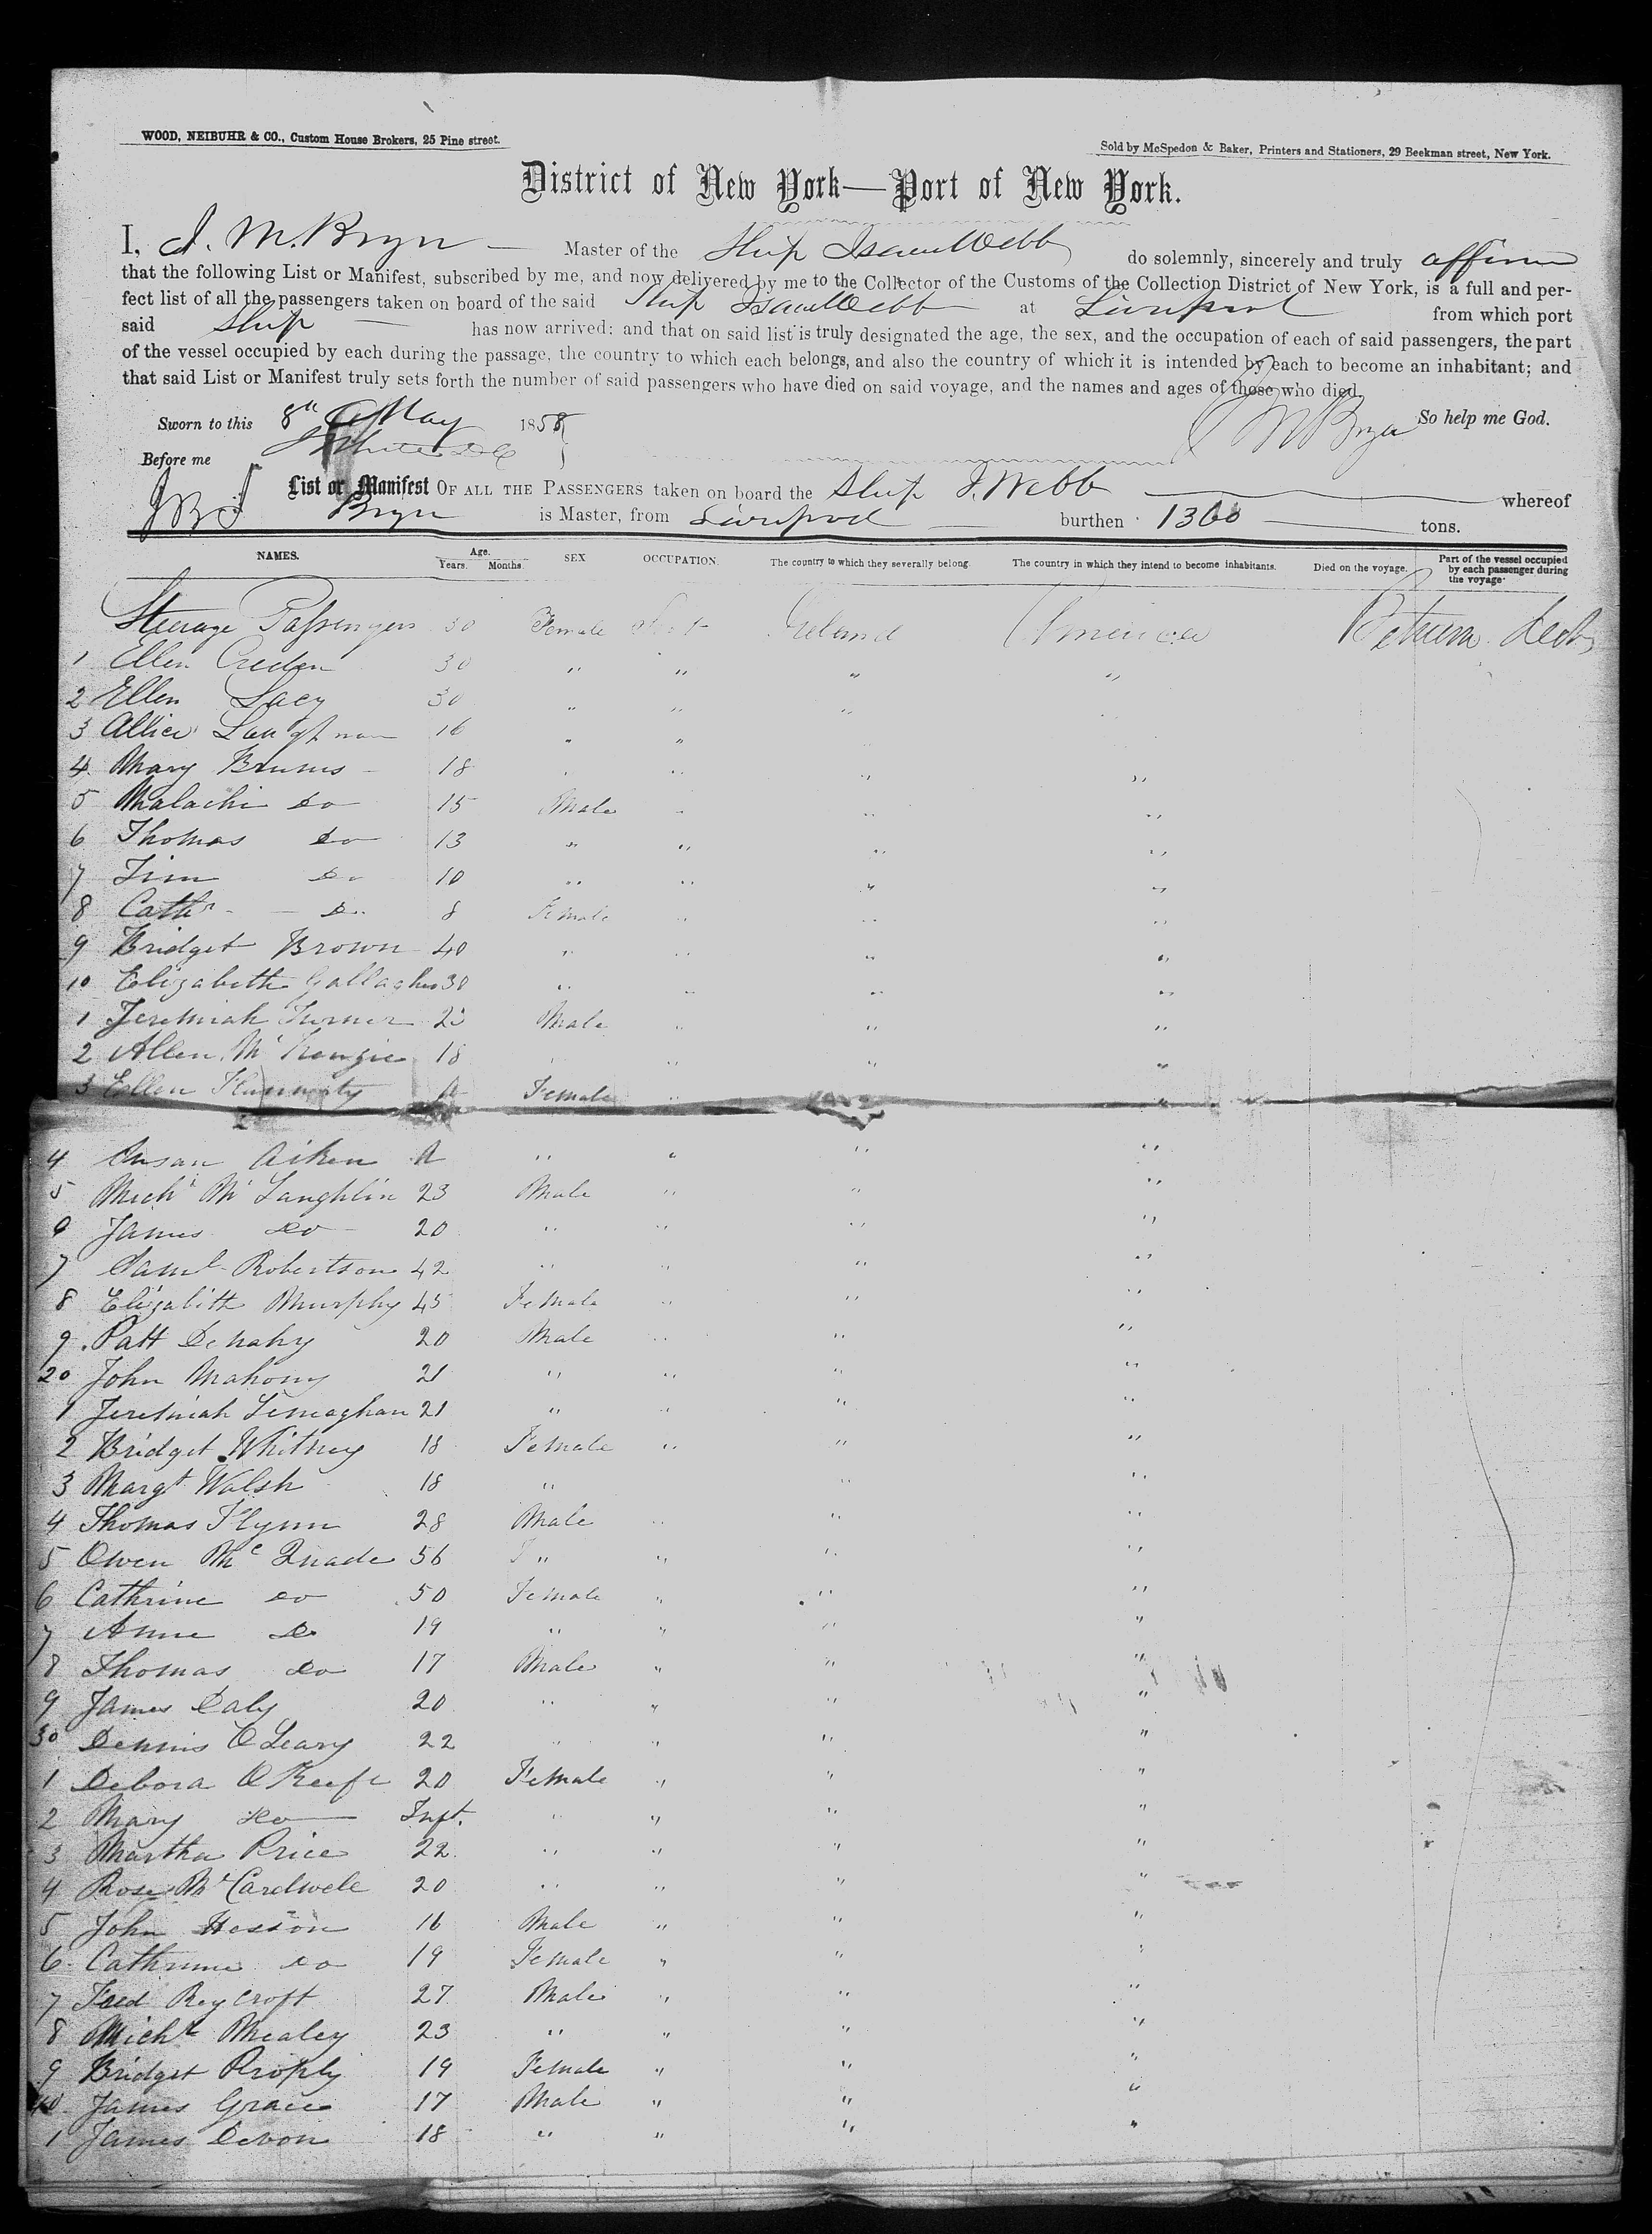 WOOD, NEIBUHR & CO., Custom House Brokers, 25 Pine street.
Sold by McSpedon & Baker, Printers and Stationers, 29 Beekman street, New York.
District of New York—Port of New York.
I, J. M. Bryer Master of the Ship Isaac Webb do solemnly, sincerely and truly affirm
that the following List or Manifest, subscribed by me, and now delivered by me to the Collector of the Customs of the Collection District of New York, is a full and per-
fect list of all the passengers taken on board of the said Ship Isaac Webb at Liverpool from which port
said Ship has now arrived: and that on said list is truly designated the age, the sex, and the occupation of each of said passengers, the part
of the vessel occupied by each during the passage, the country to which each belongs, and also the country of which it is intended by each to become an inhabitant; and
that said List or Manifest truly sets forth the number of said passengers who have died on said voyage, and the names and ages of those who died.
Sworn to this 8th May 1858 So help me God.
Before me
List or Manifest OF ALL THE PASSENGERS taken on board the Ship I. Webb whereof
is Master, from Liverpool burthen 1360 tons.
NAMES. Age. Years. Months. SEX OCCUPATION. The country to which they severally belong. The country in which they intend to become inhabitants. Died on the voyage. Part of the vessel occupied by each passenger during the voyage
Steerage Passengers 30 Female Ireland America Between Decks
1 Ellen Creden 30 " " " "
2 Ellen Lacy 30 " " "
3 Allice 16 " "
4 Mary Brums 18 " " " "
5 Malachi Do 15 Male " " "
6 Thomas Do 13 " " " "
7 Tim Do 10 " " " "
8 Cathn Do 8 Female " " "
9 Bridget Brown 40 " " " "
10 Elizabeth Gallagher 30 " " " "
1 Jeremiah Turner 23 Male " " "
2 Allen McKenzie 18 " " "
3 Ellen Female " "
4 Susan Aiken " " " "
5 Michl McLaughlin 23 Male " " "
6 James Do 20 " " " "
7 Saml Robertson 42 " " " "
8 Elizabith Murphy 45 Female " " "
9 Patt Denahy 20 Male " " "
20 John Mahony 21 " " " "
1 Jeremiah Leneaghan 21 " " " "
2 Bridget Whitney 18 Female " " "
3 Margt Walsh 18 " " "
4 Thomas Flynn 28 Male " " "
5 Owen McQuade 56 " " " "
6 Cathrine Do 50 Female " " "
7 Anne Do 19 " " " "
8 Thomas Do 17 Male " " "
9 James Daly 20 " " " "
30 Dennis O Leary 22 " " " "
1 Debora O Keefe 20 Female " " "
2 Mary Do Inft. " " " "
3 Martha Price 22 " " " "
4 Rose McCardwell 20 " " " "
5 John Hesson 16 Male " " "
6 Cathrine Do 19 Female " " "
7 Fred Roycroft 27 Male " " "
8 Michl Mealey 23 " " " "
9 Bridget 19 Female " " "
40 James Grace 17 Male " " "
1 James Devon 18 " " " "